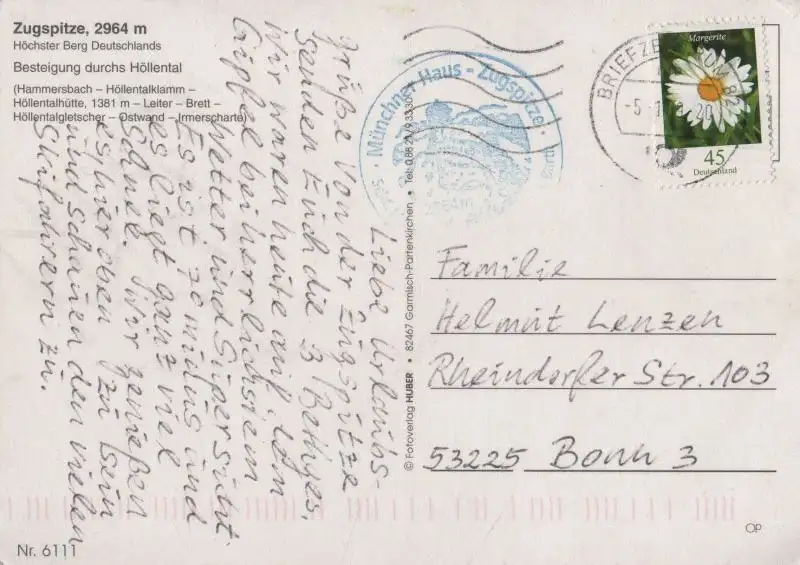 Zugspitze, 2964 m
Höchster Berg Deutschlands
Besteigung durchs Höllental
(Hammersbach – Höllentalklamm –
Höllentalhütte, 1381 m – Leiter – Brett –
Höllentalgletscher – Ostwand – Irmerscharte)
Liebe Urlaubs-
grüße von der Zugspitze
senden Euch die 3 Bethges.
Wir waren heute auf dem
Gipfel bei herrlichstem
Wetter und Supersicht.
Es ist minus und
es liegt ganz viel
Schnee. Wir genießen
es hier oben zu sein
und schauen den vielen
Skifahrern zu.
Nr. 6111
© Fotoverlag HUBER • 82467 Garmisch-Partenkirchen • Tel. 08821/93330
Münchner Haus - Zugspitze
2964m
BRIEFZE
Margerite
45
Deutschland
Familie
Helmut Lenzen
Rheindorfer Str. 103
53225 Bonn 3
OP